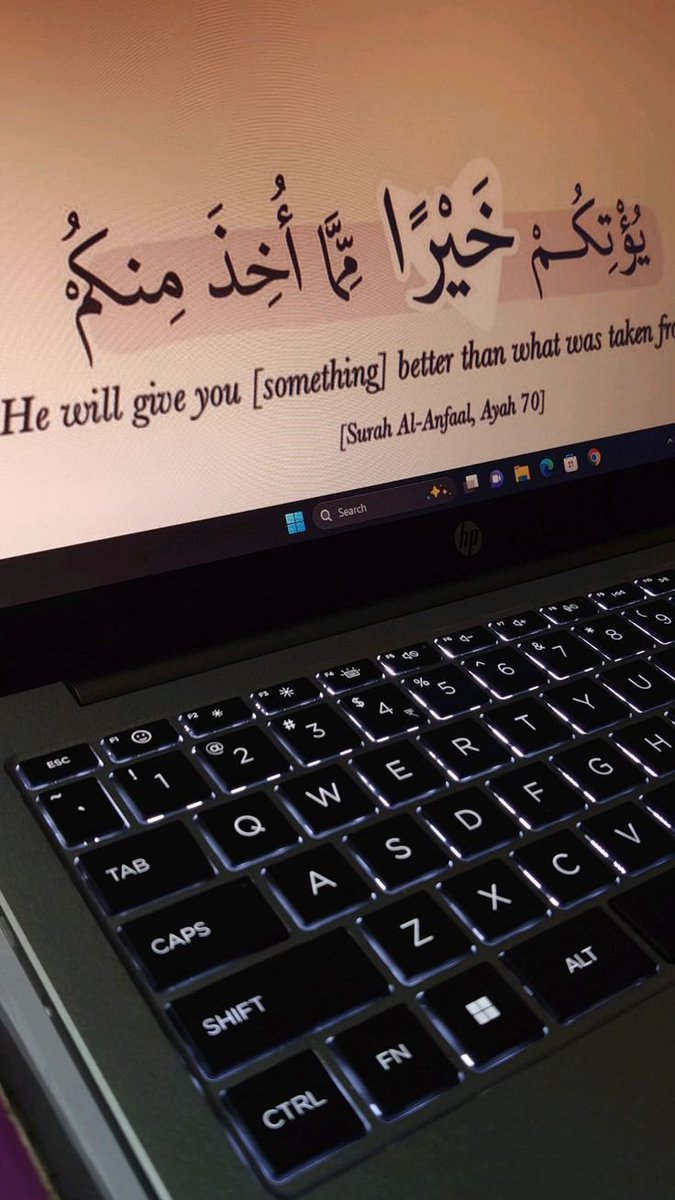 يُؤْتِكُمْ خَيْرًا مِّمَّا أُخِذَ مِنكُمْ
He will give you [something] better than what was taken
[Surah Al-Anfaal, Ayah 70]
Search
hp
ESC F1 F2 F3 F4 F5 F6 F7 F8
~ ` ! 1 @ 2 # 3 $ 4 ₹ % 5 ^ 6 & 7 * 8 ( 9
TAB Q W E R T Y U
CAPS A S D F G H
SHIFT Z X C V
CTRL FN ALT